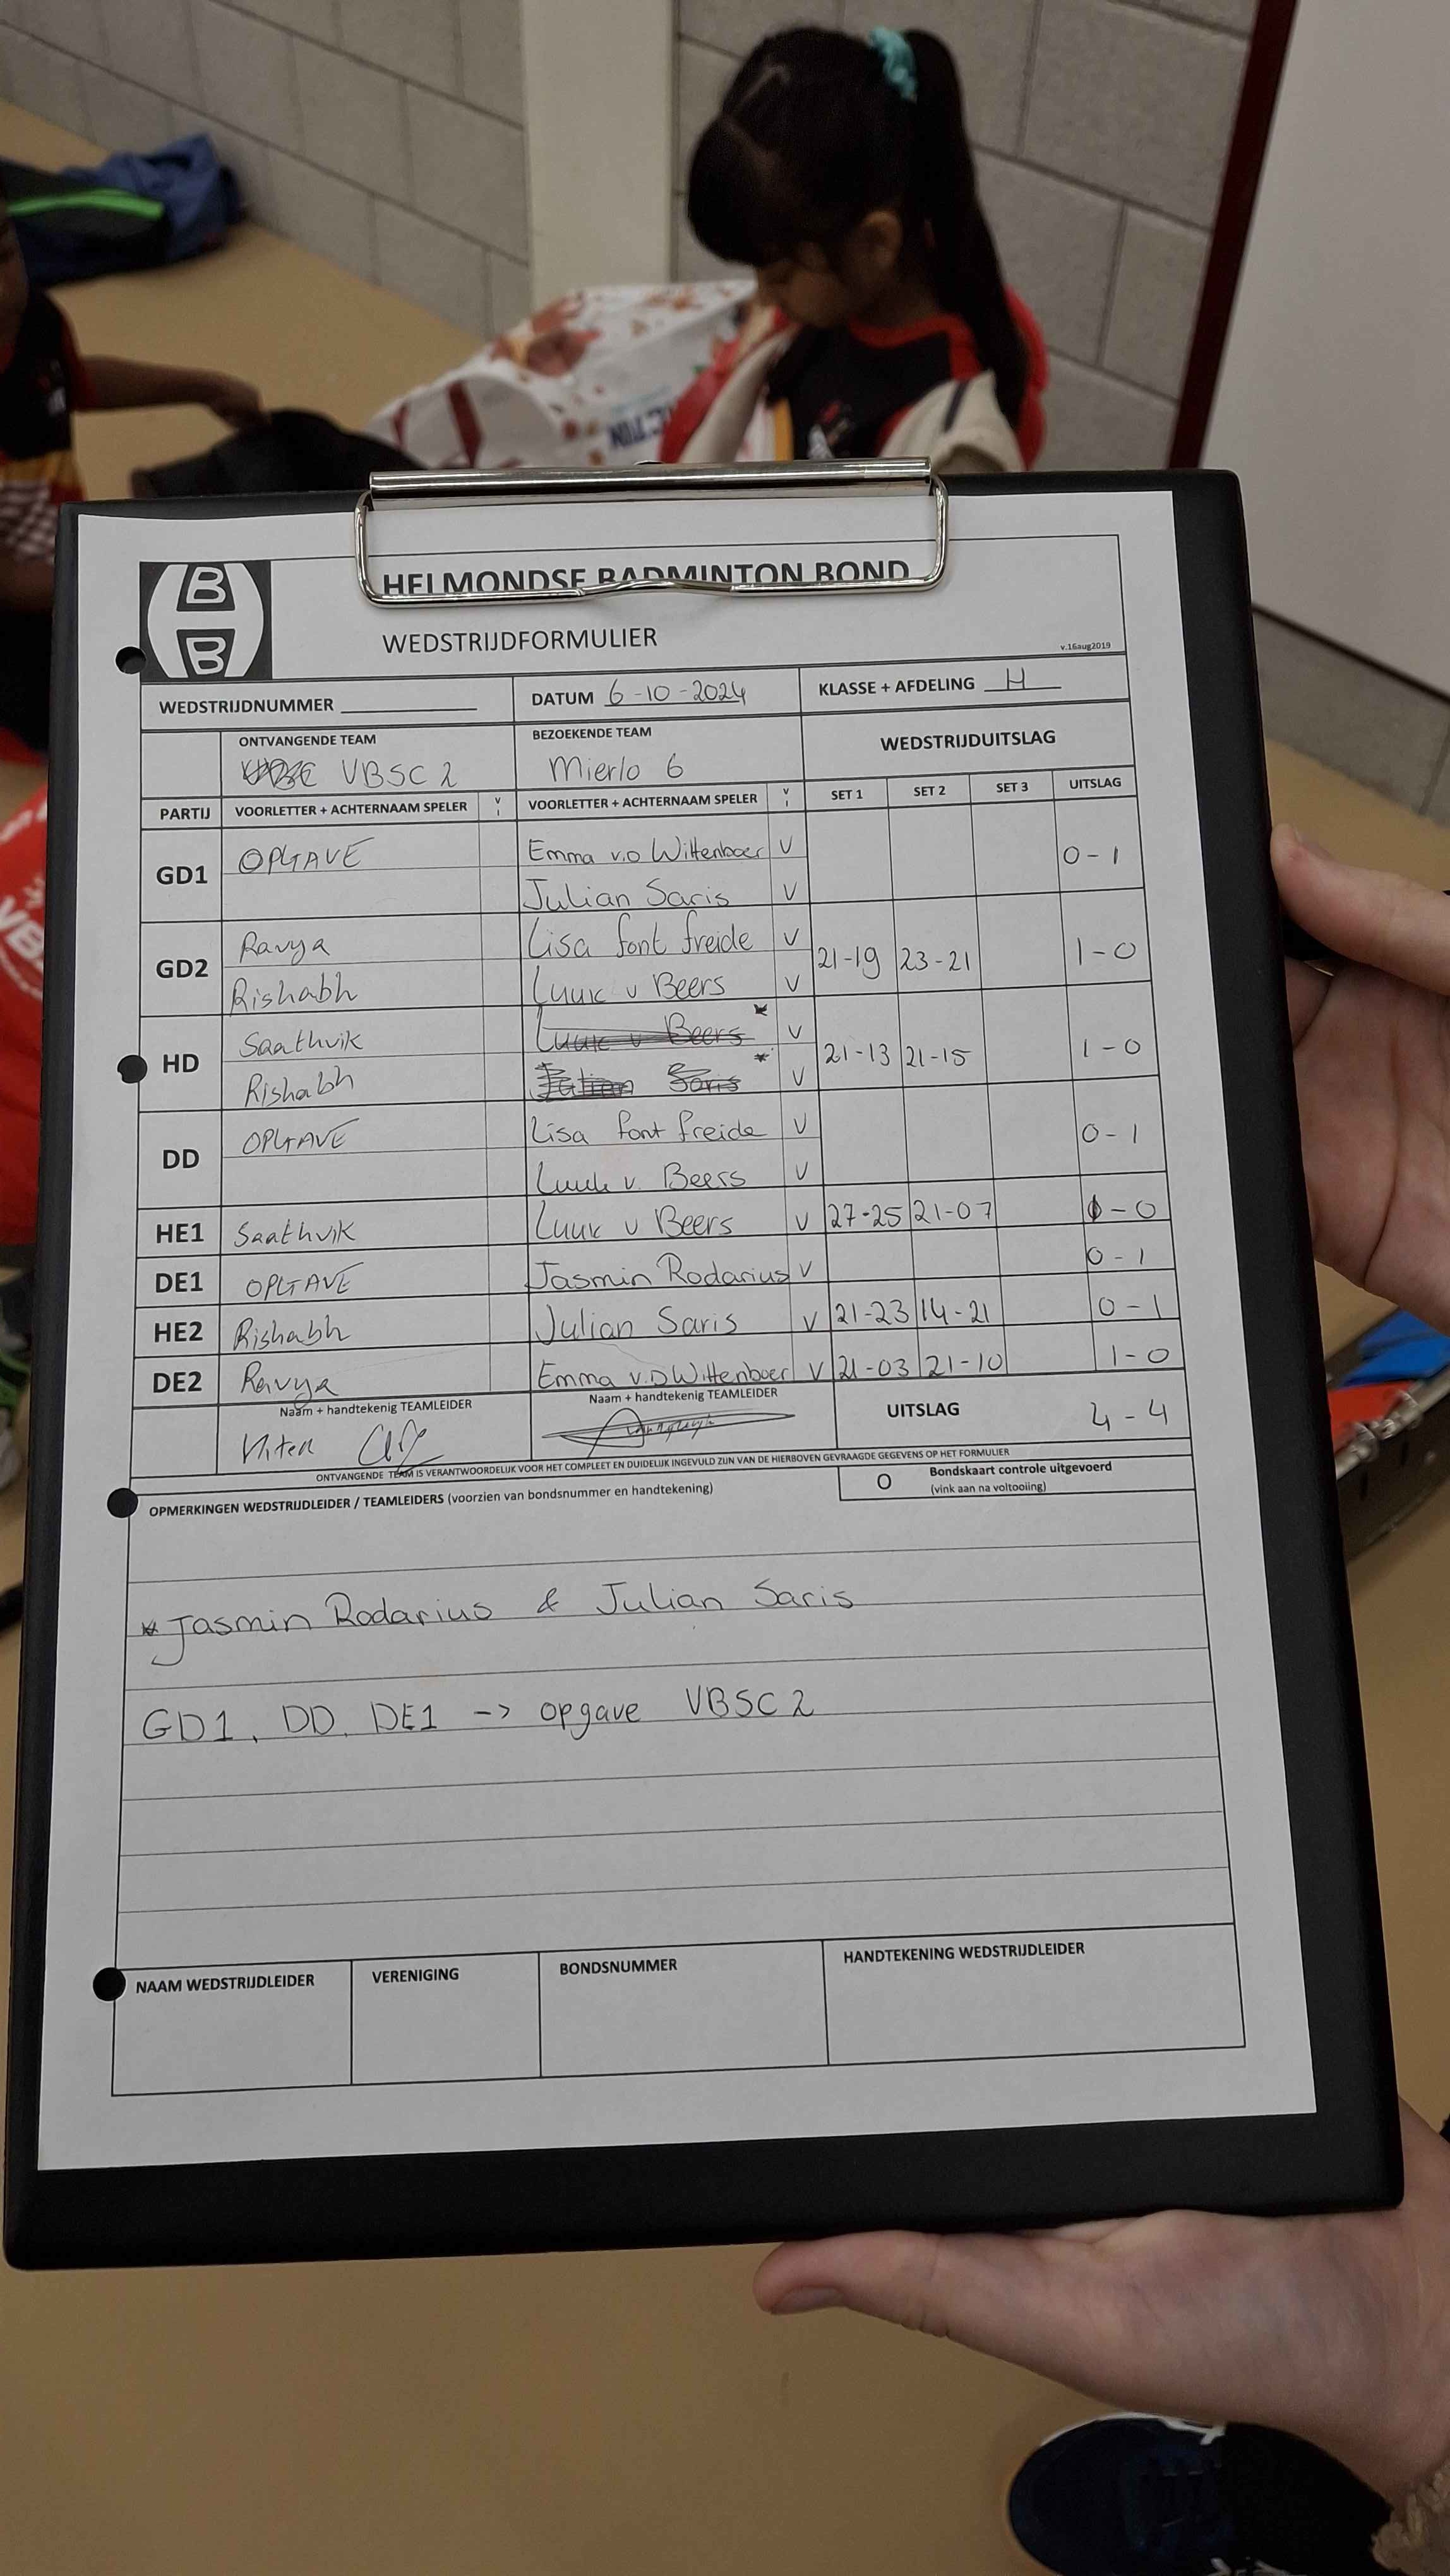 HELMONDSE BADMINTON BOND
WEDSTRIJDFORMULIER
v.16aug2019
WEDSTRIJDNUMMER
DATUM 6-10-2024
KLASSE + AFDELING H
ONTVANGENDE TEAM
VBSC 2
BEZOEKENDE TEAM
Mierlo 6
WEDSTRIJDUITSLAG
PARTIJ VOORLETTER + ACHTERNAAM SPELER V I VOORLETTER + ACHTERNAAM SPELER V I SET 1 SET 2 SET 3 UITSLAG
GD1 OPGAVE Emma v.o Wittenboer V 0-1
Julian Saris V
GD2 Ravya Lisa font freide V 21-19 23-21 1-0
Rishabh Luuk v Beers V
HD Saathvik Luuk v Beers * V 21-13 21-15 1-0
Rishabh Julian Saris * V
DD OPGAVE Lisa font freide V 0-1
Luuk v. Beers V
HE1 Saathvik Luuk v Beers V 27-25 21-07 1-0
DE1 OPGAVE Jasmin Rodarius V 0-1
HE2 Rishabh Julian Saris V 21-23 14-21 0-1
DE2 Ravya Emma v.D Wittenboer V 21-03 21-10 1-0
Naam + handtekenig TEAMLEIDER
Naam + handtekenig TEAMLEIDER
UITSLAG 4-4
ONTVANGENDE TEAM IS VERANTWOORDELIJK VOOR HET COMPLEET EN DUIDELIJK INGEVULD ZIJN VAN DE HIERBOVEN GEVRAAGDE GEGEVENS OP HET FORMULIER
OPMERKINGEN WEDSTRIJDLEIDER / TEAMLEIDERS (voorzien van bondsnummer en handtekening)
O Bondskaart controle uitgevoerd
(vink aan na voltooiing)
* Jasmin Rodarius & Julian Saris
GD1, DD, DE1 -> opgave VBSC 2
NAAM WEDSTRIJDLEIDER
VERENIGING
BONDSNUMMER
HANDTEKENING WEDSTRIJDLEIDER